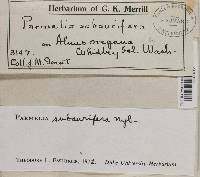 Herbarium of G. K. Merrill
Parmelia subaurifera
on Alnus oregana
3147. Whidbey Isl. Wash.
Coll. J. M. Grant
PARMELIA subaurifera Nyl.
THEODORE L. ESSLINGER, 1972. Duke University Herbarium